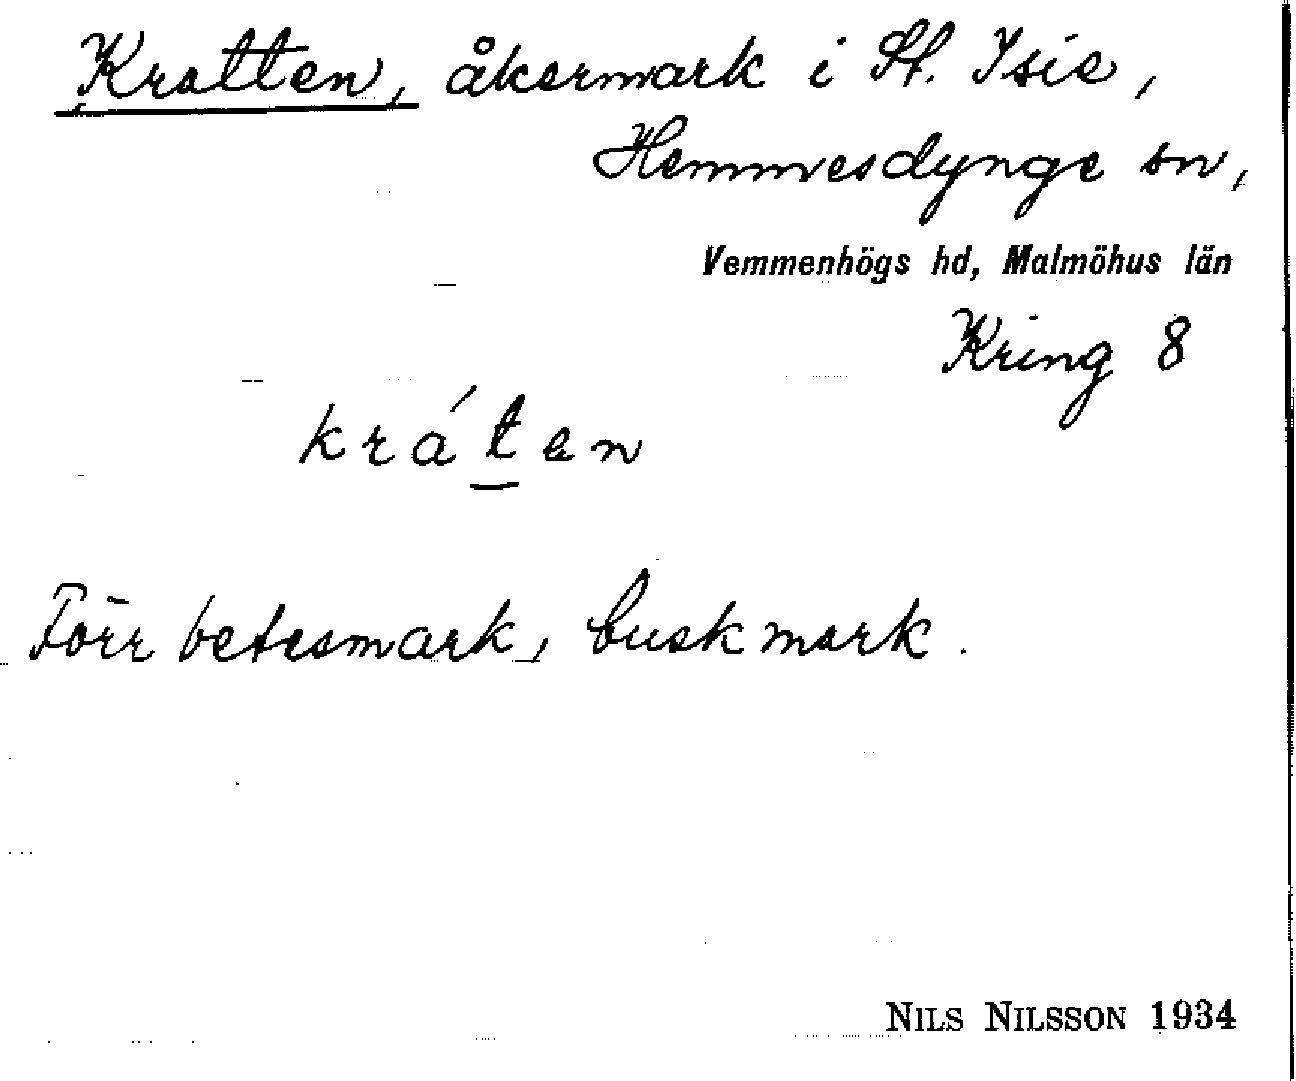 Kratten, åkermark i St. Isie,
Hemmesdynge sn,
Vemmenhögs hd, Malmöhus län
Kring 8
krát̲en
Förr betesmark, buskmark.
NILS NILSSON 1934